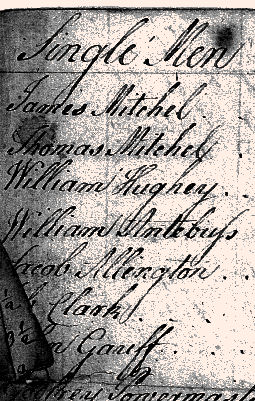 Single Men
James Mitchel
Thomas Mitchel
William Hughey
William Antebuss
Jacob Allington
Clark
Garell